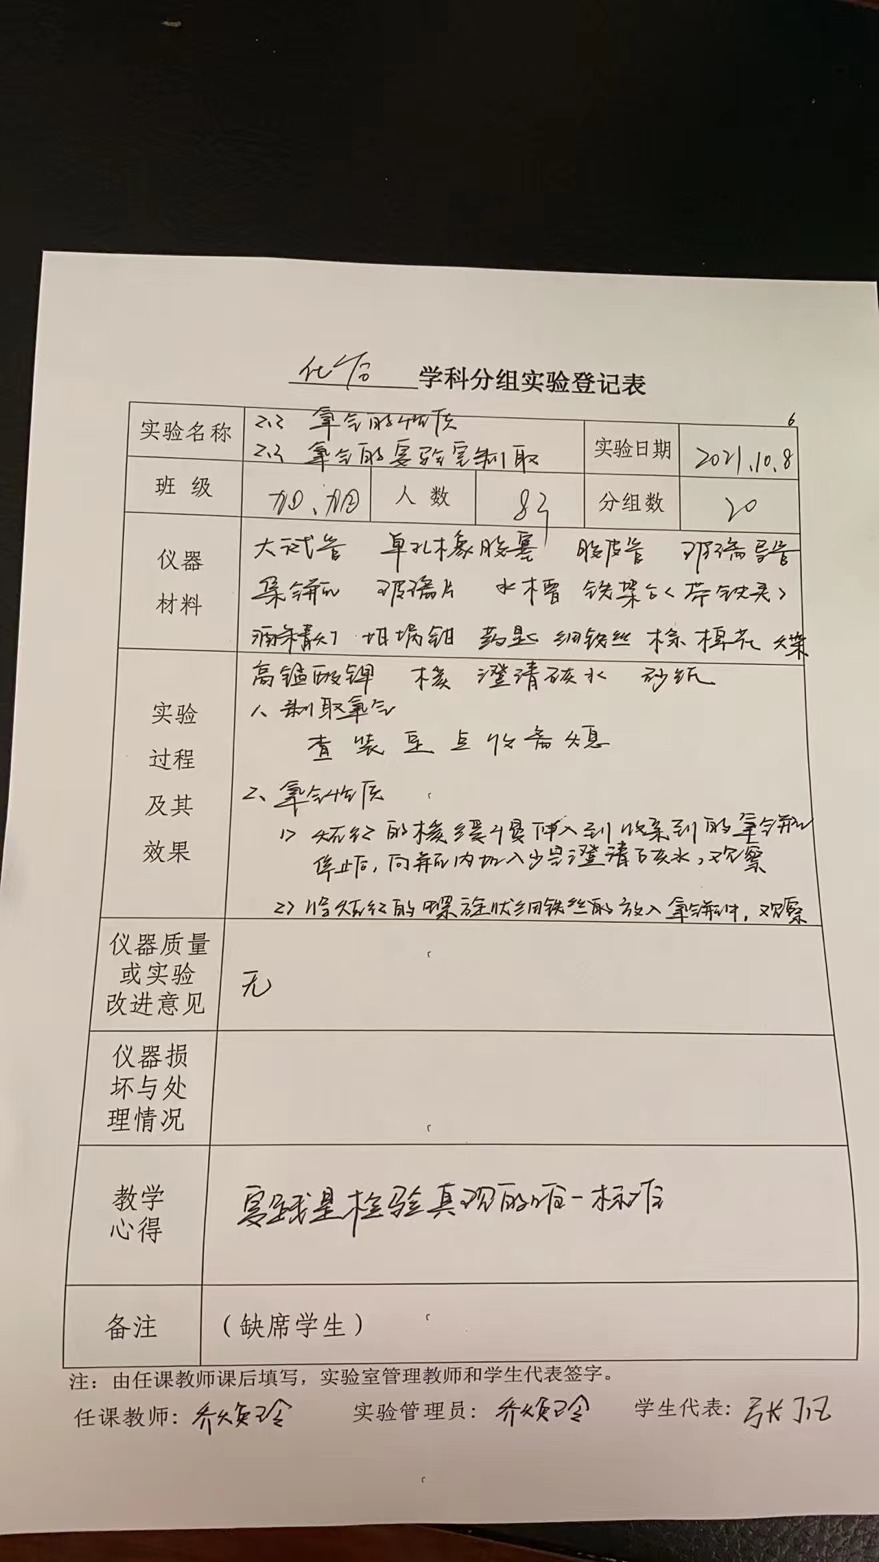 化学 学科分组实验登记表
6
实验名称 2.2 氧气的性质
2.3 氧气的实验室制取
实验日期 2021.10.8
班级 人数 83 分组数 20
仪器材料 大试管 单孔橡胶塞 胶皮管 玻璃导管
集气瓶 玻璃片 水槽 铁架台(带铁夹)
酒精灯 坩埚钳 药匙 细铁丝 棉花 火柴
高锰酸钾 澄清石灰水 砂纸
实验过程及其效果
1、制取氧气
查 装 定 点 收 离 熄
2、氧气性质
1) 烧红的 缓慢伸入到收集到的氧气瓶
停止后,向瓶内加入少量澄清石灰水,观察
2) 将烧红的螺旋状细铁丝的放入氧气瓶中,观察
仪器质量或实验改进意见 无
仪器损坏与处理情况
教学心得 实践是检验真理的唯一标准
备注 (缺席学生)
注:由任课教师课后填写,实验室管理教师和学生代表签字。
任课教师: 实验管理员: 学生代表: